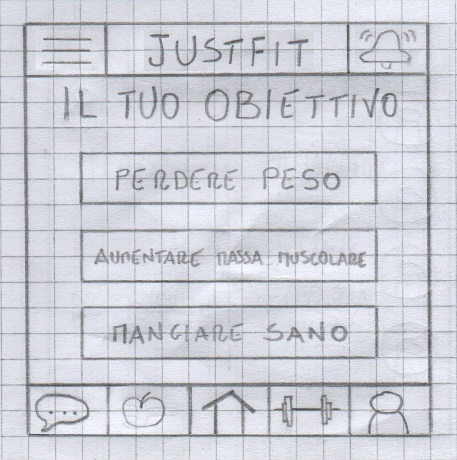 JUSTFIT
IL TUO OBIETTIVO
PERDERE PESO
AUMENTARE MASSA MUSCOLARE
MANGIARE SANO